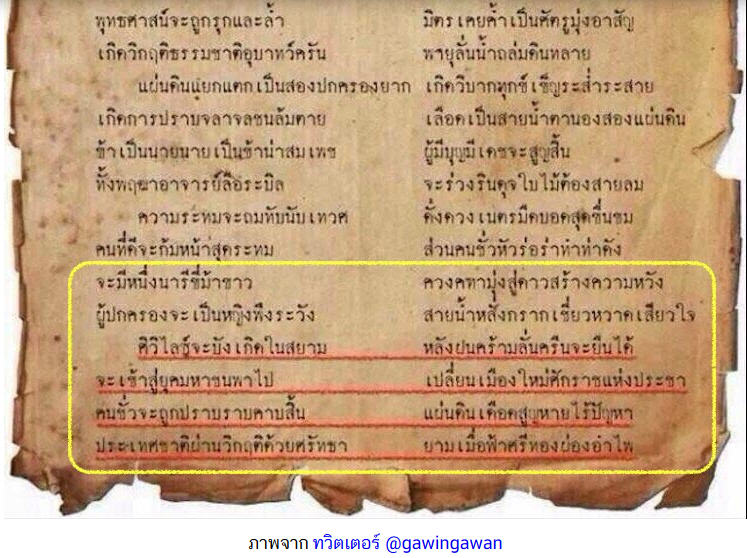 พุทธศาสน์จะถูกรุกและล้ำ มิตรเคยค้ำเป็นศัตรูมุ่งอาสัญ
เกิดวิกฤติธรรมชาติอุบาทว์ครัน พายุลั่นน้ำถล่มดินทลาย
แผ่นดินแยกแตกเป็นสองปกครองยาก เกิดวิบากทุกข์เข็ญระส่ำระสาย
เกิดการปราบจลาจลชนล้มตาย เลือดเป็นสายน้ำตานองสองแผ่นดิน
ข้าเป็นนายนายเป็นข้าน่าสมเพช ผู้มีบุญมีเดชจะสูญสิ้น
ทั้งพฤฒาอาจารย์ลือระบิล จะร่วงรินดุจใบไม้ต้องสายลม
ความระทมจะถมทับนับเทวศ ดั่งดวงเนตรมืดบอดสุดขื่นขม
คนที่ดีจะก้มหน้าสุดระทม ส่วนคนชั่วหัวร่อร่าทำท่าดัง
จะมีหนึ่งนารีขี่ม้าขาว ควงคฑามุ่งสู่ดาวสร้างความหวัง
ผู้ปกครองจะเป็นหญิงพึงระวัง สายน้ำหลั่งกรากเชี่ยวหวาดเสียวใจ
ศิวิไลซ์จะบังเกิดในสยาม หลังฝนคร้ามลั่นครืนจะยืนได้
จะเข้าสู่ยุคมหาชนพาไป เปลี่ยนเมืองใหม่ศักราชแห่งประชา
คนชั่วจะถูกปราบราบคาบสิ้น แผ่นดินเดือดสูญหายไร้ปัญหา
ประเทศชาติผ่านวิกฤติด้วยศรัทธา ยามเมื่อฟ้าศรีทองผ่องอำไพ
ภาพจาก ทวิตเตอร์ @gawingawan